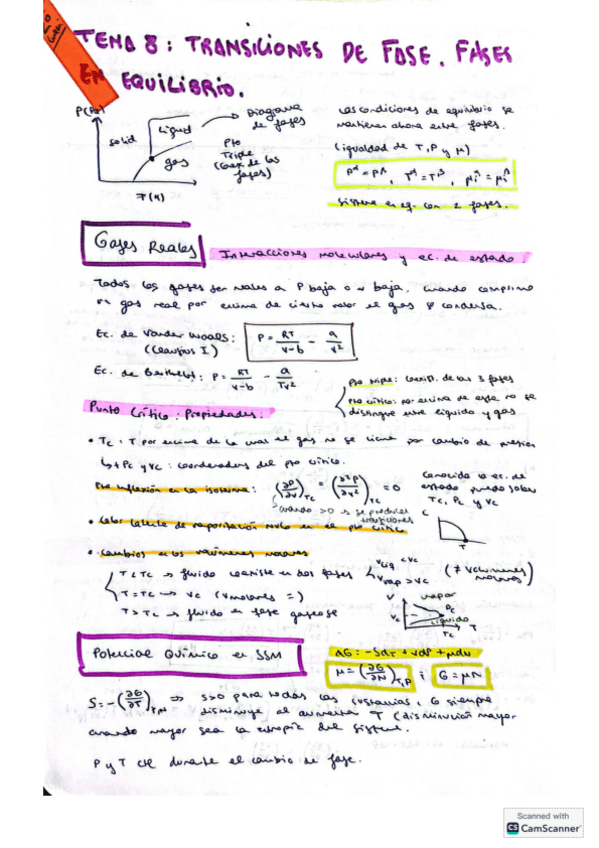 TEMA 8: TRANSICIONES DE FASE. FASES
EN EQUILIBRIO.
P(Pa)
solid
liquid
gas
T(K)
Diagrama
de fases
Pto
Triple
(coex de las
fases)
Las condiciones de equilibrio se
mantienen ahora entre fases.
(igualdad de T, P y μ)
Pᵅ = Pᵝ, Tᵅ = Tᵝ, μᵢᵅ = μᵢᵝ
Sistema en eq. con 2 fases.
Gases Reales
Interacciones moleculares y ec. de estado.
Todos los gases son reales a P baja o v baja. Cuando comprimo
un gas real por encima de cierto valor el gas condensa.
Ec. de Van der Waals:
(Clausius I)
P = RT/(v-b) - a/v²
Ec. de Berthelot: P = RT/(v-b) - a/(Tv²)
Pto triple: coexist. de las 3 fases
Pto crítico: por encima de este no se
distingue entre líquido y gas
Punto Crítico: Propiedades:
• Tc: T por encima de la cual el gas no se licua por cambio de presión
↳ Pc y vc: coordenadas del pto crítico.
Pto inflexión en la isoterma: (∂P/∂v)Tc = (∂²P/∂v²)Tc = 0
cuando >0 no se producen
transiciones
Conocida la ec. de
estado puedo saber
Tc, Pc y vc
• Calor latente de vaporización nulo en el pto crítico
• Cambios en los volúmenes molares
T < Tc → fluido coexiste en dos fases
vliq < vc
vvap > vc
(≠ volúmenes
molares)
T = Tc → vc (vmolares =)
T > Tc → fluido en fase gaseosa
vapor
líquido
Potencial Químico en SSM
dG = -SdT + VdP + μdN
μ = (∂G/∂N)T,P ; G = μN
S = -(∂G/∂T)P,N ⇒ S>0 para todas las sustancias, G siempre
disminuye al aumentar T (disminución mayor
cuando mayor sea la entropía del sistema.
P y T cte durante el cambio de fase.
Scanned with
CS CamScanner